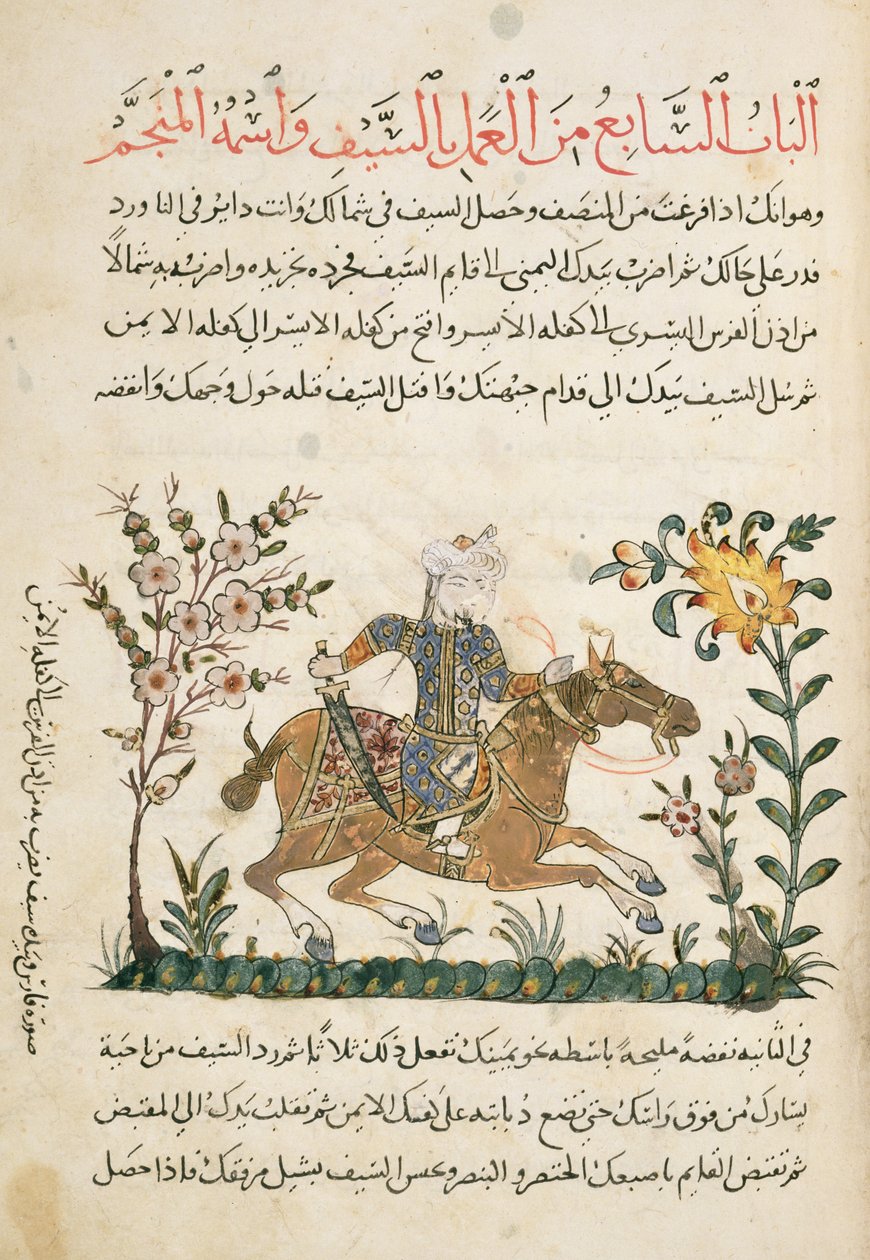 الْبَابُ السَّابِعُ مِنَ الْعَمَلِ بِالسَّيْفِ وَاسْمُهُ الْمُنَجَّمُ
وهو انك اذا فرغت من المنصف وحصل السيف في شمالك وانت داير في الناورد
فدر على حالك ثم اضرب بيدك اليمنى الى قايم السيف فجرده تجريده واضرب به شمالا
من اذن الفرس اليسرى الى كفله الأيسر وافتح من كفله الايسر الى كفله الايمن
ثم شل السيف بيدك الى قدام جبهتك وافتل السيف فتله حول وجهك وانفضه
صورة فارس وبيده سيف يضرب به من اذن الفرس الى كفله الايمن
في الثانيه نفضةً مليحةً باسطه نحو يمينك تفعل ذلك ثلاثًا ثم رد السيف من ناحية
يسارك من فوق راسك حتى تضع ذبابته على كتفك الايمن ثم تقلب يدك الى المقبض
ثم تقبض القايم باصبعك الخنصر والبنصر وعس السيف بشيل مرفقك فاذا حصل